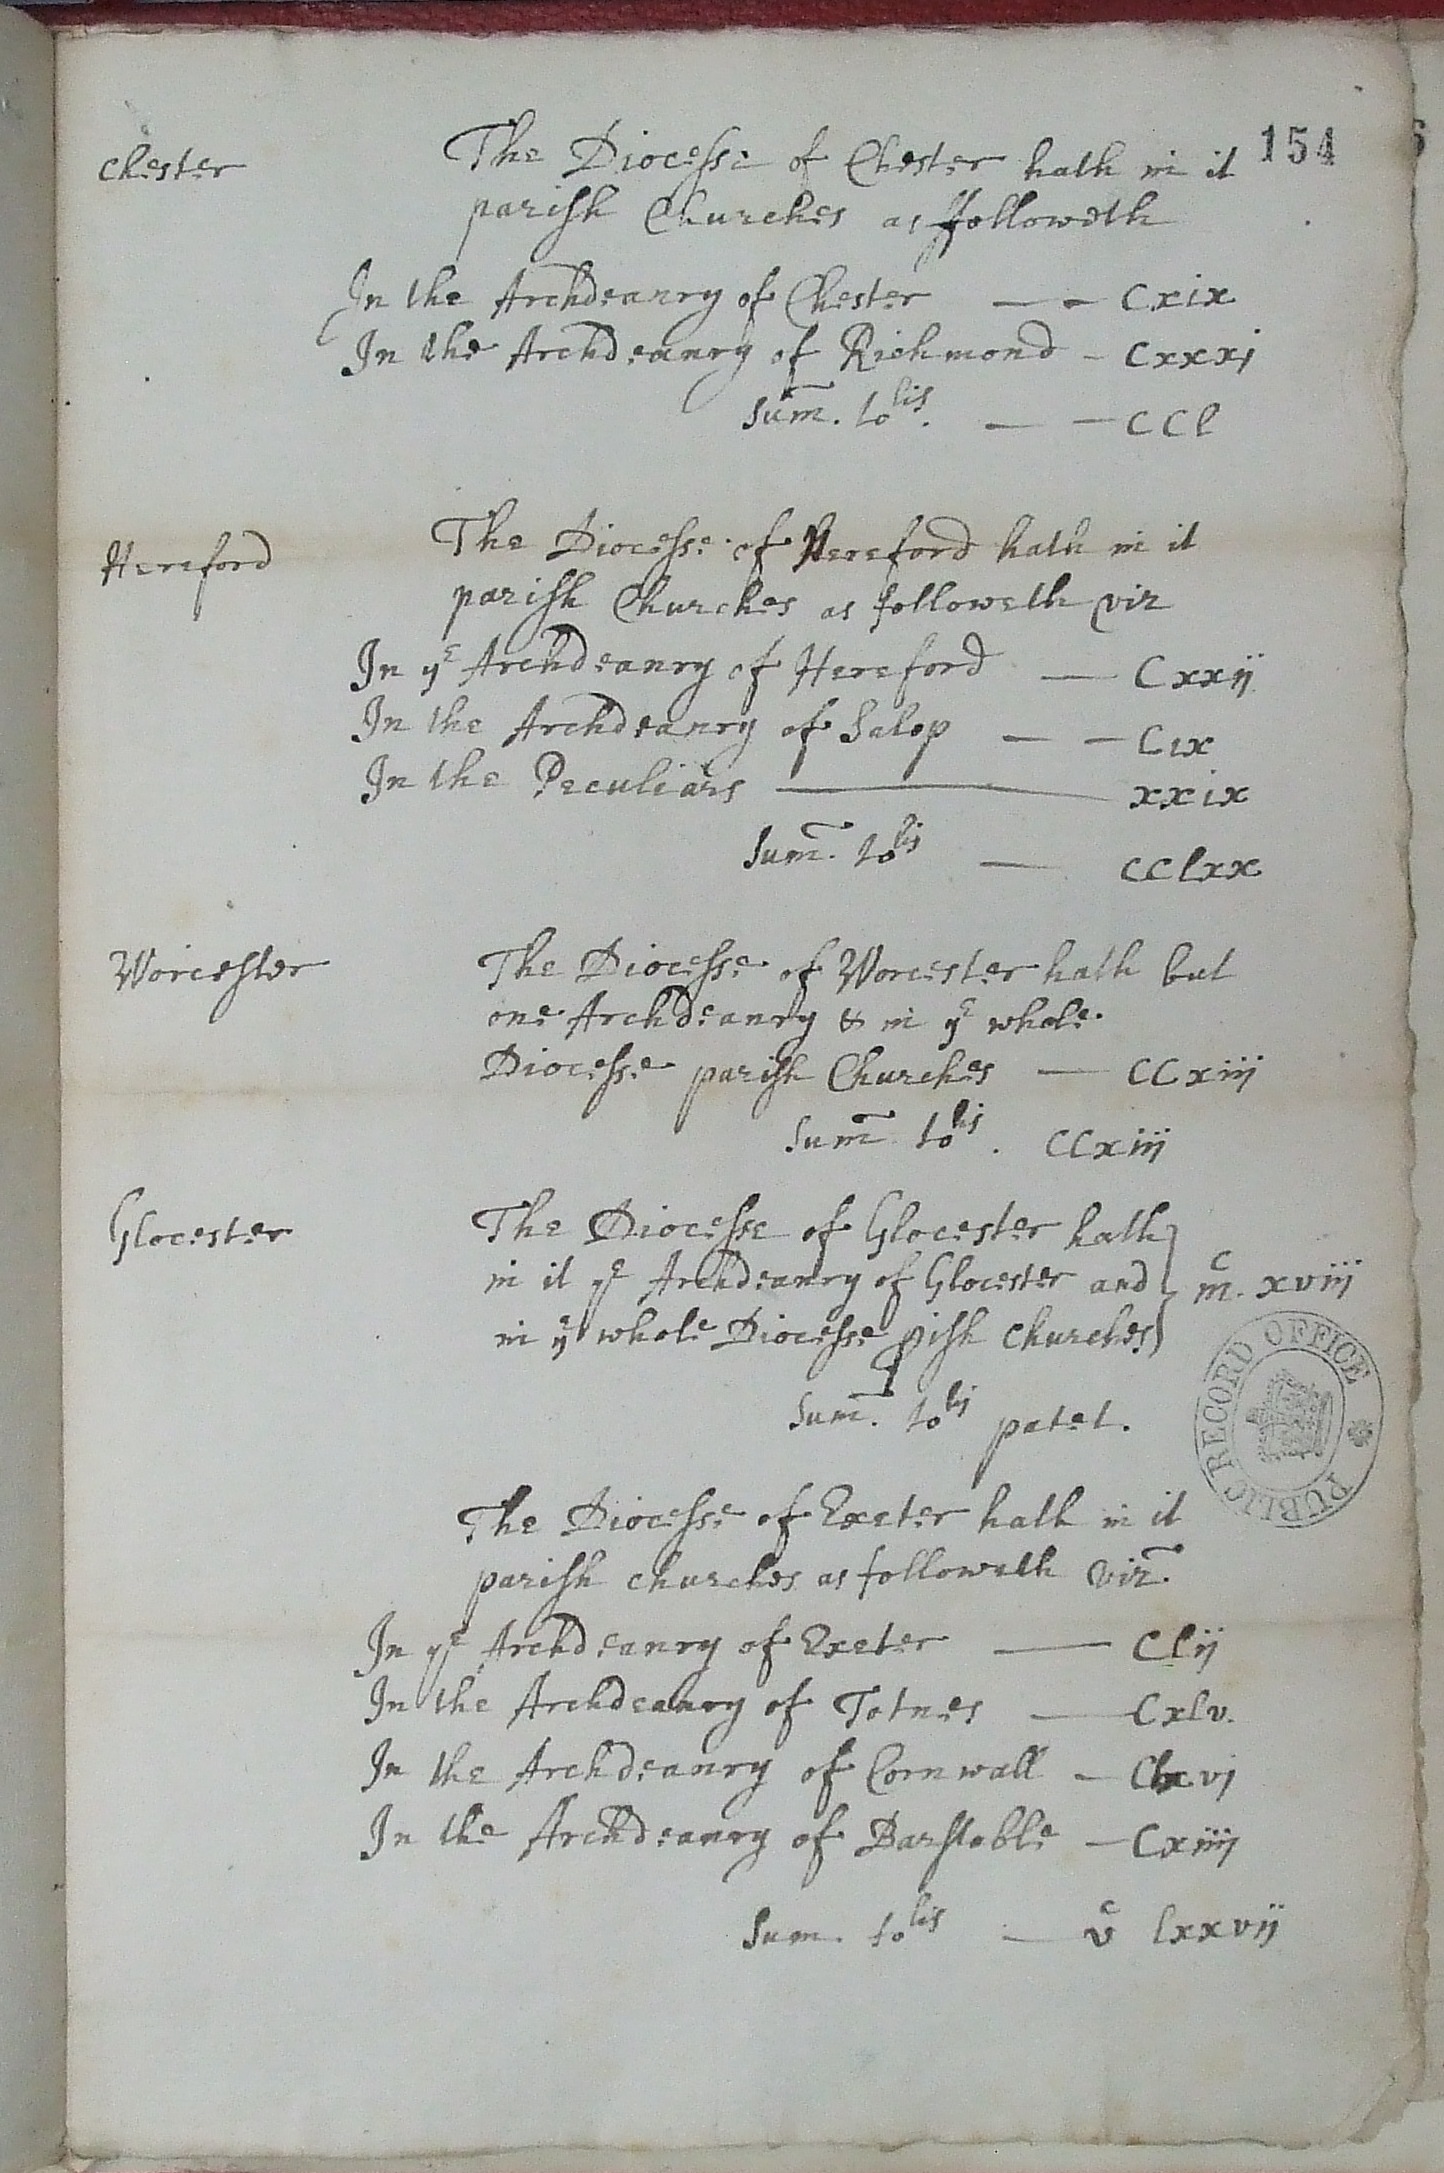 154
Chester
The Diocesse of Chester hath in it
parish Churches as followeth
In the Archdeanry of Chester — — Cxix
In the Archdeanry of Richmond — Cxxxj
Sum̄. to^lis. — — CCl
Hereford
The Diocesse of Hereford hath in it
parish Churches as followeth viz
In y^e Archdeanry of Hereford — Cxxij
In the Archdeanry of Salop — — Cix
In the Peculiars — xxix
Sum̄. to^lis — CClxx
Worcester
The Diocesse of Worcester hath but
one Archdeanry & in y^e whole
Diocesse parish Churches — CCxiij
Sum̄ to^lis. CCxiij
Glocester
The Diocesse of Glocester hath
in it y^e Archdeanry of Glocester and } m^c. xviij
in y^e whole Diocesse pish Churches
Sum̄. to^lis patet.
The Diocesse of Exeter hath in it
parish churches as followeth viz.
In y^e Archdeanry of Exeter — Clij
In the Archdeanry of Totnes — Cxlv.
In the Archdeanry of Cornwall — Clxvj
In the Archdeanry of Barstable — Cxiiij
Sum. to^lis — v^c lxxvij
PUBLIC RECORD OFFICE